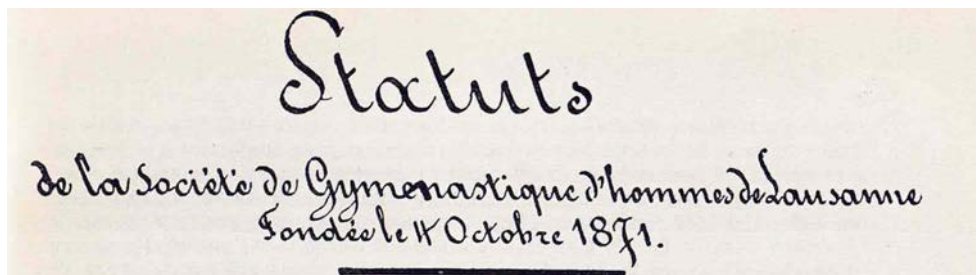 Statuts
de la Société de Gymenastique d'hommes de Lausanne
Fondée le Octobre 1871.